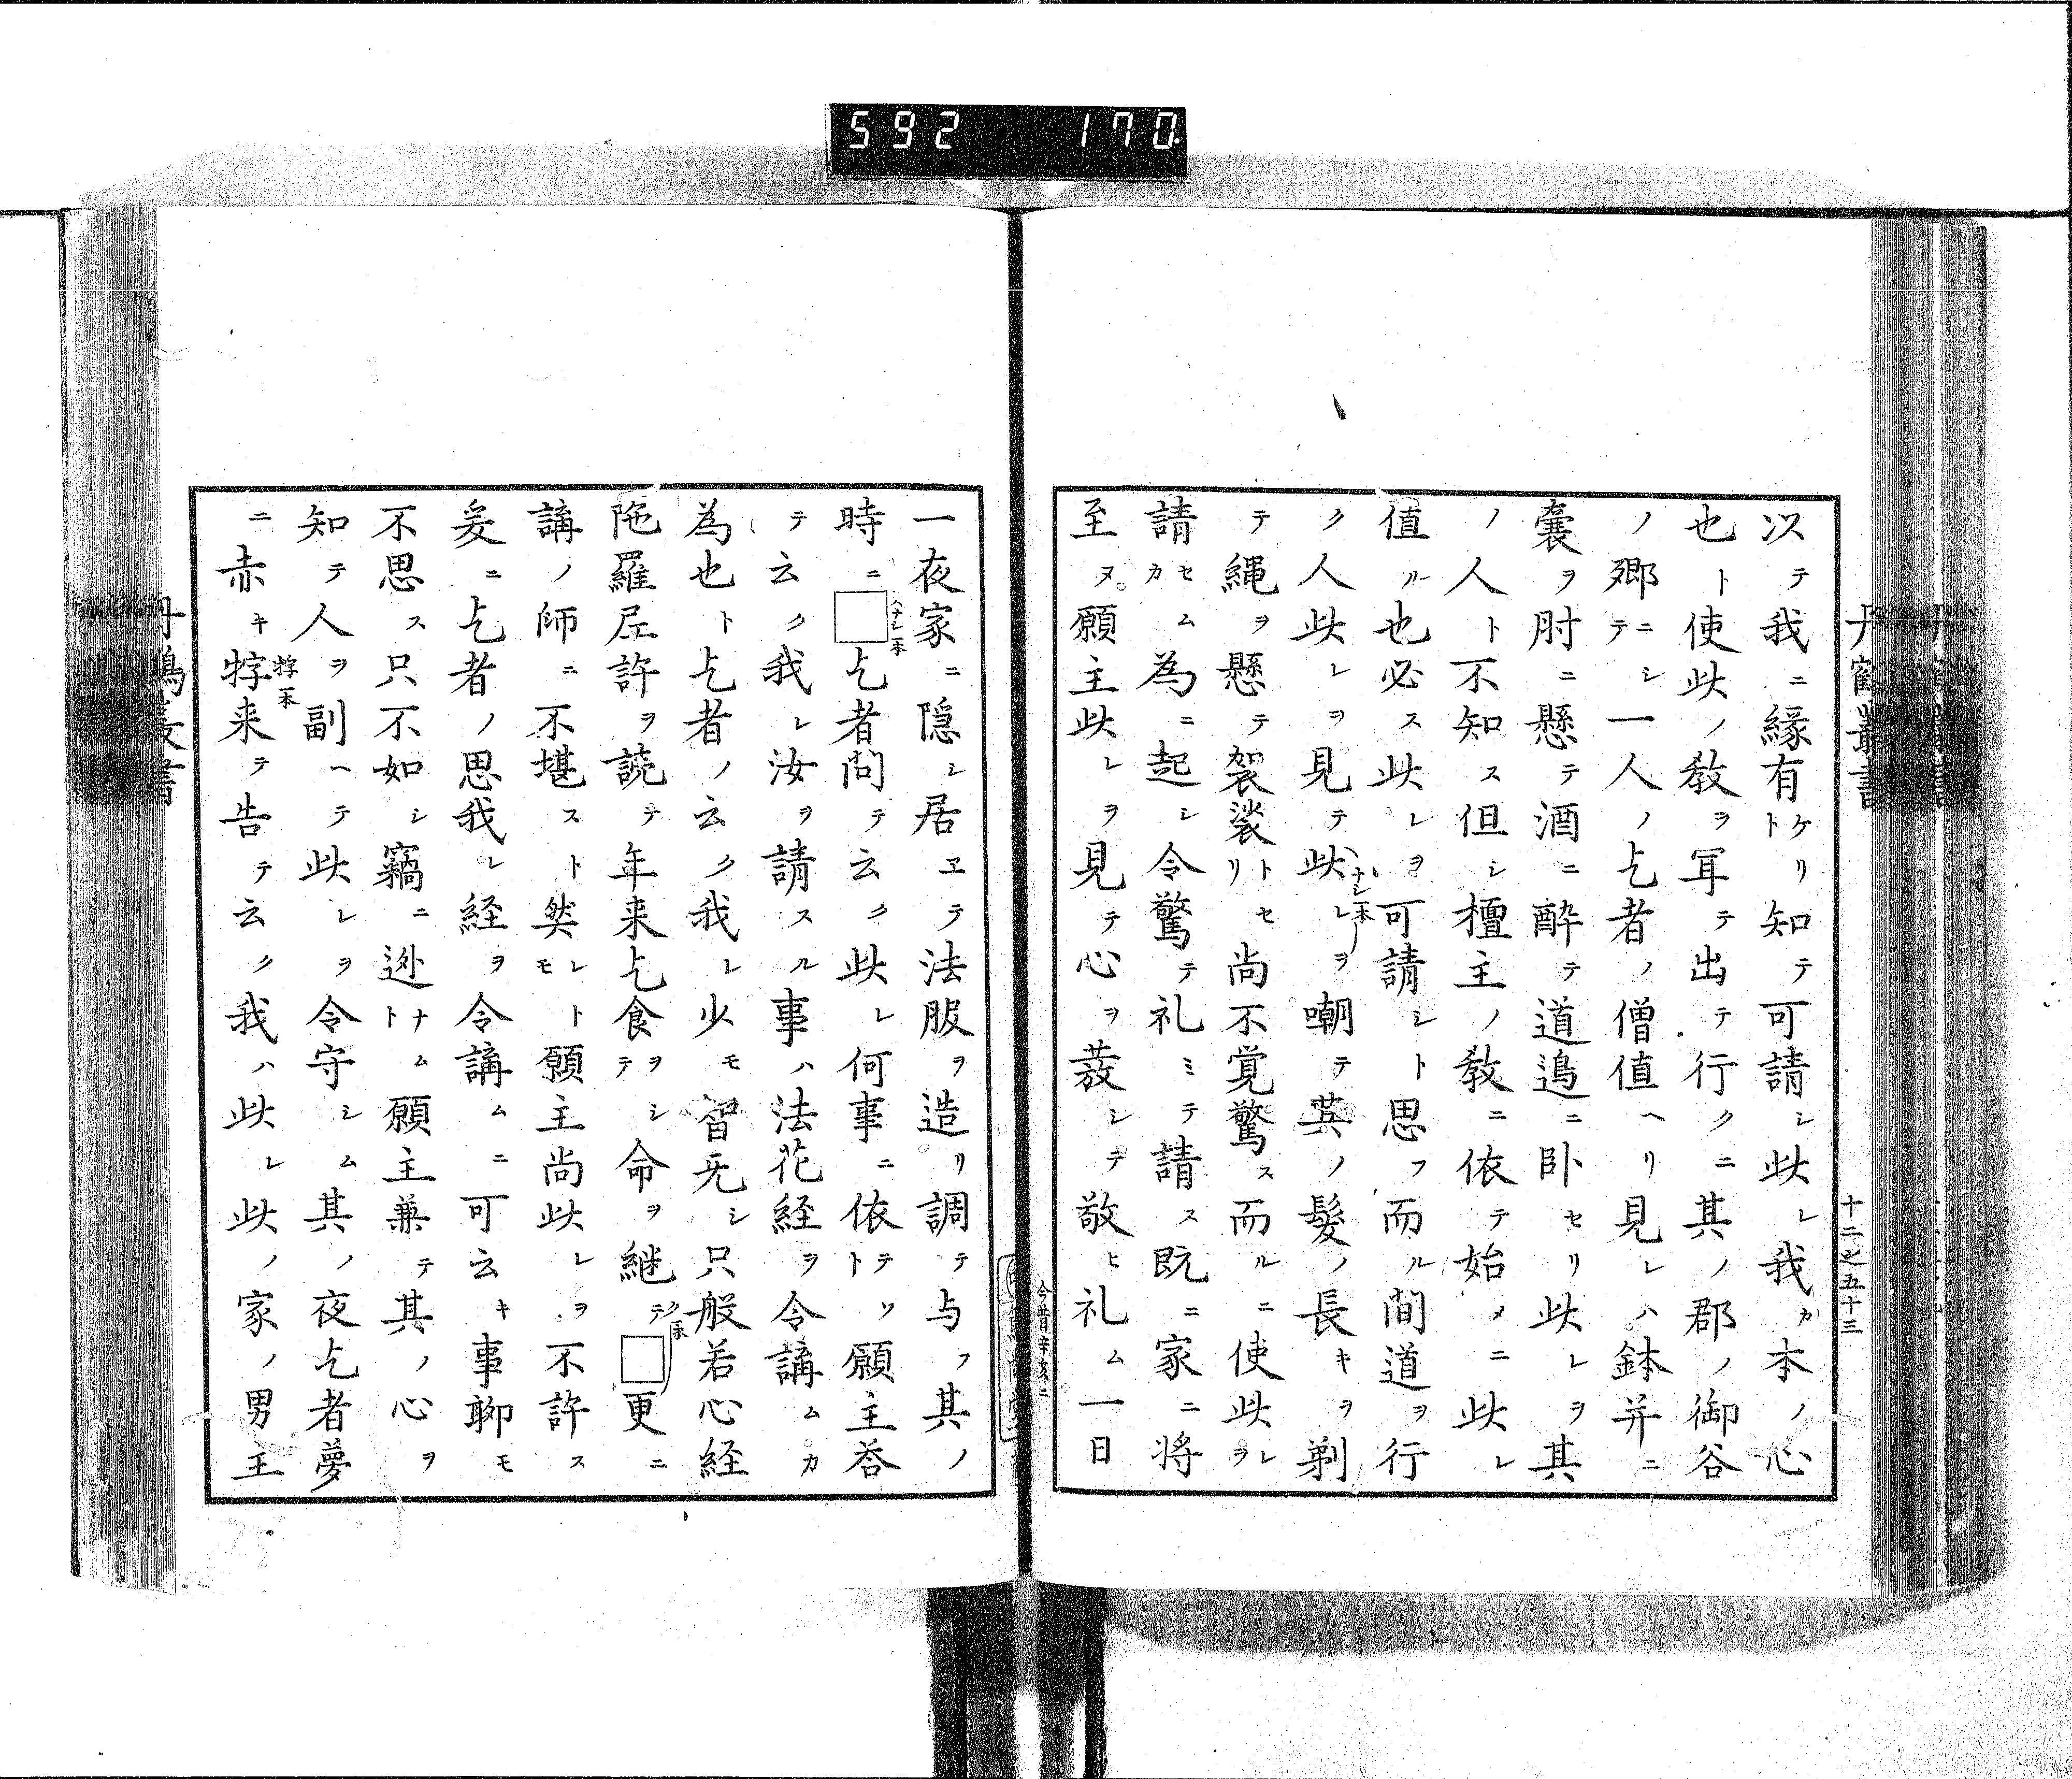 592 170
丹鶴叢書
十二之五十三
以テ我ニ縁有ケリト知テ可請シ此レ我カ本ノ心
也ト使此ノ教ヲ耳テ出テ行クニ其ノ郡ノ御谷
ノ郷ニシテ一人ノ乞者ノ僧値ヘリ見レハ鉢并ニ
嚢ヲ肘ニ懸テ酒ニ酔テ道邉ニ卧セリ此レヲ其
ノ人ト不知ス但シ檀主ノ教ニ依テ始メニ此レ
値ル也必ス此レヲ可請シト思フ而ル間道ヲ行
ク人此レヲ見テ此レヲ嘲テ其ノ髪ノ長キヲ剃
ハナシ一本
テ縄ヲ懸テ袈裟トセリ尚不覚驚ス而ルニ使此レヲ
請セムカ為ニ起シ令驚テ礼ミテ請ス既ニ家ニ将
至ヌ願主此レヲ見テ心ヲ発シテ敬ヒ礼ム一日
今昔
一夜家ニ隠シ居ヱテ法服ヲ造リ調テ与フ其ノ
時ニ□乞者問テ云ク此レ何事ニ依テトソ願主荅
テ云ク我レ汝ヲ請スル事ハ法花経ヲ令講ムカ
為也ト乞者ノ云ク我レ少モ智无シ只般若心経
陁羅尼許ヲ読テ年来乞食ヲシテ命ヲ継テ□更ニ
ク一本
講ノ師ニ不堪スト然レトモト願主尚此レヲ不許ス
爰ニ乞者ノ思我レ経ヲ令講ムニ可云キ事聊モ
不思ス只不如シ竊ニ迯ナムト願主兼テ其ノ心ヲ
知テ人ヲ副ヘテ此レヲ令守シム其ノ夜乞者夢
ニ赤キ牸来テ告テ云ク我ハ此レ此ノ家ノ男主
牸一本